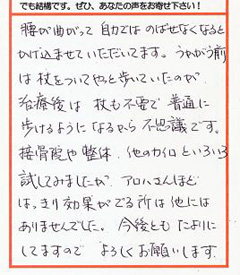 でも結構です。ぜひ、あなたの声をお寄せ下さい！
腰が曲がって自力ではのばせなくなると
かけ込ませていただいてます。うかがう前
は杖をついてやっと歩いていたのが、
治療後は杖も不要で普通に
歩けるようになるから不思議です。
接骨院や整体、他のカイロといろいろ
試してみましたが、アロハさんほど
はっきり効果がでる所は他には
ありませんでした。今後ともたよりに
してますのでよろしくお願いします。